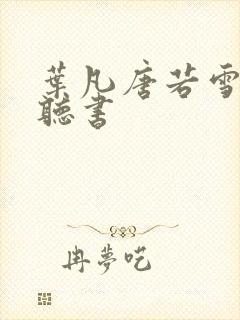 葉凡唐若雪
聽書
冉夢呓